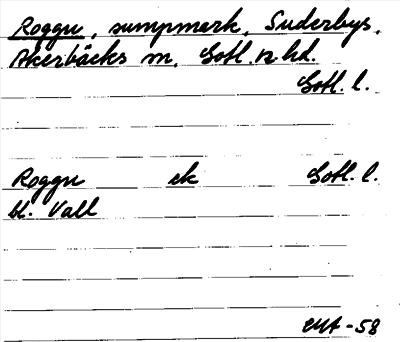 Roggu, sumpmark, Suderbys,
Akerbäcks m, Gotl. n. hd.
Gotl. l.
Roggu ek Gotl. l.
bl. Vall
-58